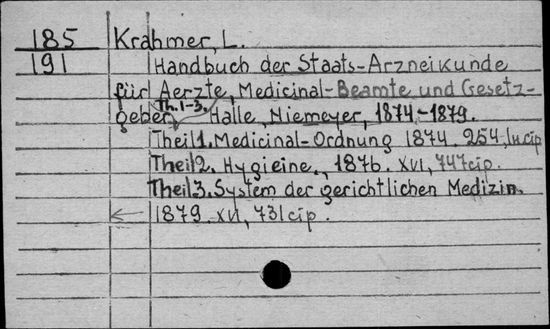 185 Krahmer, L.
191 Handbuch der Staats-Arzneikunde
für Aerzte, Medicinal-Beamte und Gesetz-
geber Th. 1-3. Halle, Niemeyer, 1874-1879.
Theil 1. Medicinal-Ordnung 1874. 254,
Theil 2. Hygieine., 1876. XVI, 747 cip.
Theil 3. System der gerichtlichen Medizin.
1879. XVI, 731 cip.